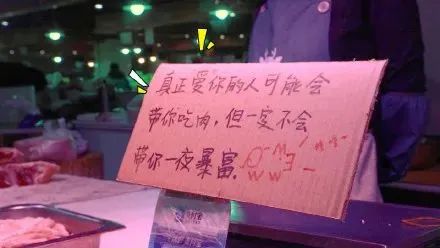 真正爱你的人可能会
带你吃肉，但一定不会
带你一夜暴富.